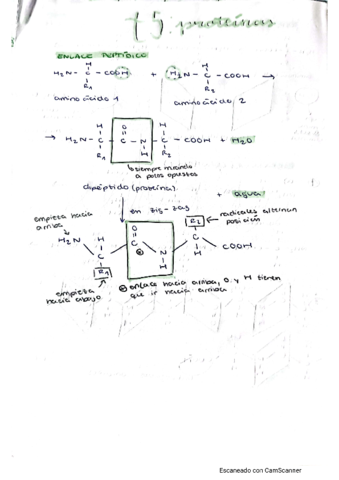 T5. proteínas
ENLACE PEPTÍDICO
H
H
H₂N - C - COOH + H₂N - C - COOH →
R₁
R₂
aminoácido 1
aminoácido 2
H O H
→ H₂N - C - C - N - C - COOH + H₂O
R₁ H R₂
siempre mirando
a polos opuestos
dipéptido (proteína)
+ agua
empieza hacia
arriba
en zig-zag
radicales alternan
posición
H₂N
H
C
R₁
O
C
N
H
R₂
C
H
COOH
empieza
hacia abajo
enlace hacia arriba, O y H tienen
que ir hacia arriba
Escaneado con CamScanner